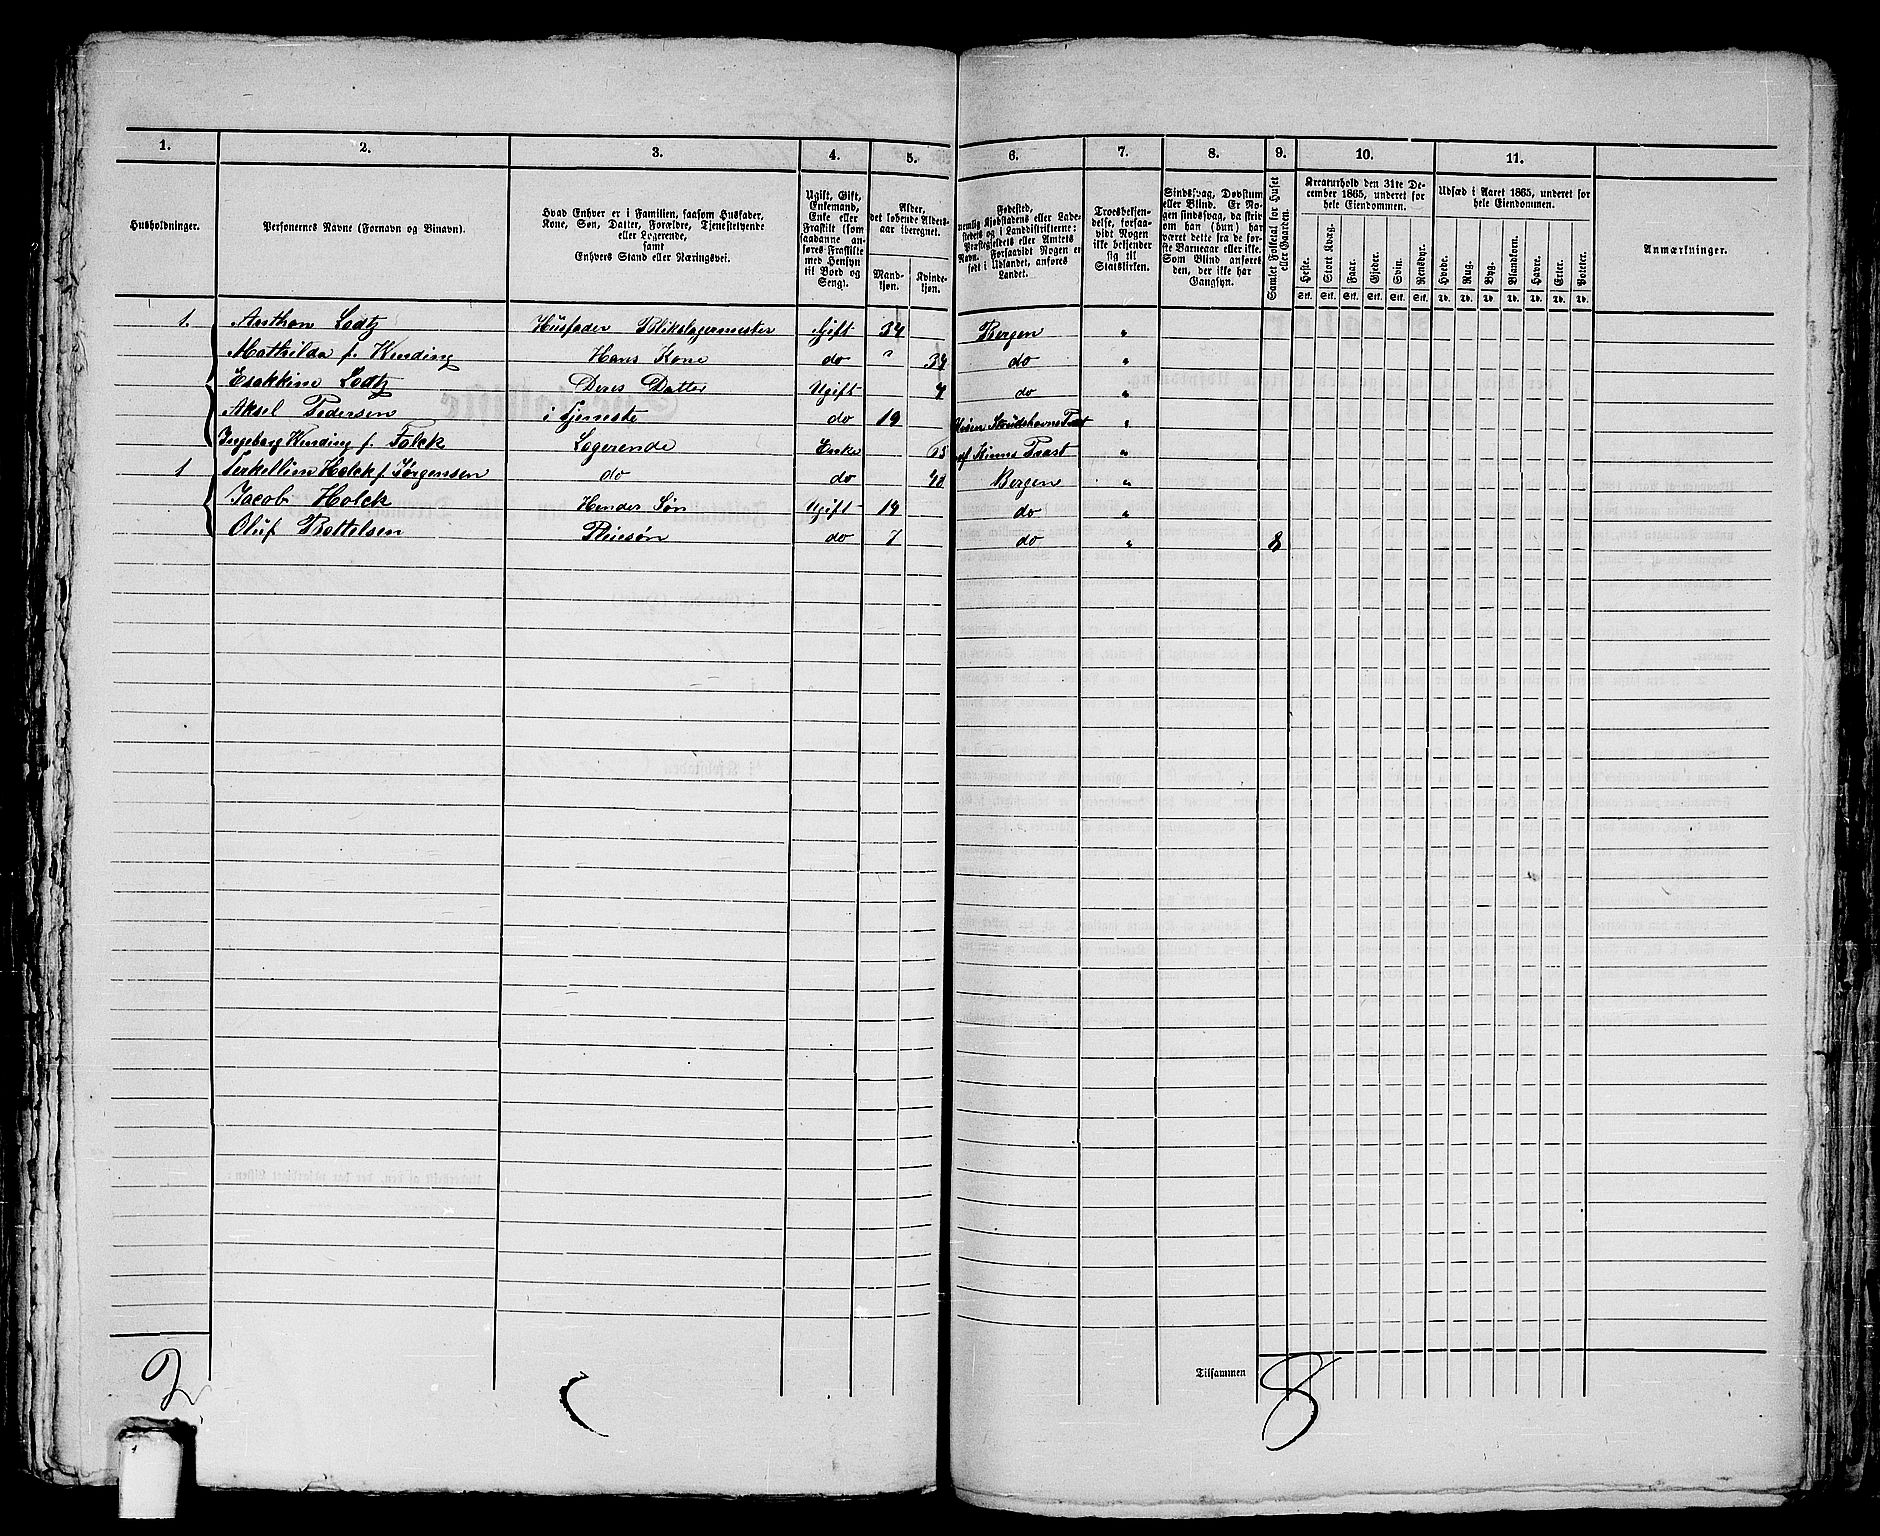 1. 2. 3. 4. 5. 6. 7. 8. 9. 10. 11.
Husholdninger.
Personernes Navne (Fornavn og Binavn).
Hvad Enhver er i Familien, saasom Husfader,
Kone, Søn, Datter, Forældre, Tjenestetyende
eller Logerende,
samt
Enhvers Stand eller Næringsvei.
Ugift, Gift,
Enkemand,
Enke eller
Fraskilt (som
saadanne an-
føres Fraskilte
med Hensyn
til Bord og
Seng).
Alder,
det løbende Alders-
aar iberegnet.
Mand-
kjøn.
Kvinde-
kjøn.
Fødested,
nemlig Kjøbstadens eller Lade-
stedets og i Landdistrikterne:
Præstegjeldets eller Amtets
Navn. Forsaavidt Nogen er
født i Udlandet, anføres
Landet.
Troesbekjen-
delse, forsaa-
vidt Nogen
ikke bekjender
sig til
Statskirken.
Sindssvag, Døvstum
eller Blind. Er No-
gen sindssvag, da skriv
om han (hun) har
været dette fra de før-
ste Barneaar eller ikke.
Som Blind anføres
den, der ikke har
Gangsyn.
Samlet Folketal for Huset
eller Gaarden.
Kreaturhold den 31te De-
cember 1865, underet for
hele Eiendommen.
Heste. Stort Kvæg. Faar. Gjeder. Svin. Rensdyr.
Stk. Stk. Stk. Stk. Stk. Stk.
Udsæd i Aaret 1865, underet for
hele Eiendommen.
Hvede. Rug. Byg. Blandkorn. Havre. Erter. Poteter.
Td. Td. Td. Td. Td. Td. Td.
Anmærkninger.
1. Anthon Lodtz Husfader Blikslagermester Gift 34 Bergen "
Mathilda f. Kinding Hans Kone do " 34 do "
Esakkine Lodtz Deres Datter Ugift 4 do "
Aksel Pedersen i tjeneste do 19 "
Ingeborg Kinding f. Falck Logerende Enke 65 Kinns Præst "
1 Holck f. Jørgensen do do Bergen "
Jacob Holck Hendes Søn Ugift 19 do "
Oluf Bottelsen Pleiesøn do 7 do " 8
2
Tilsammen 8